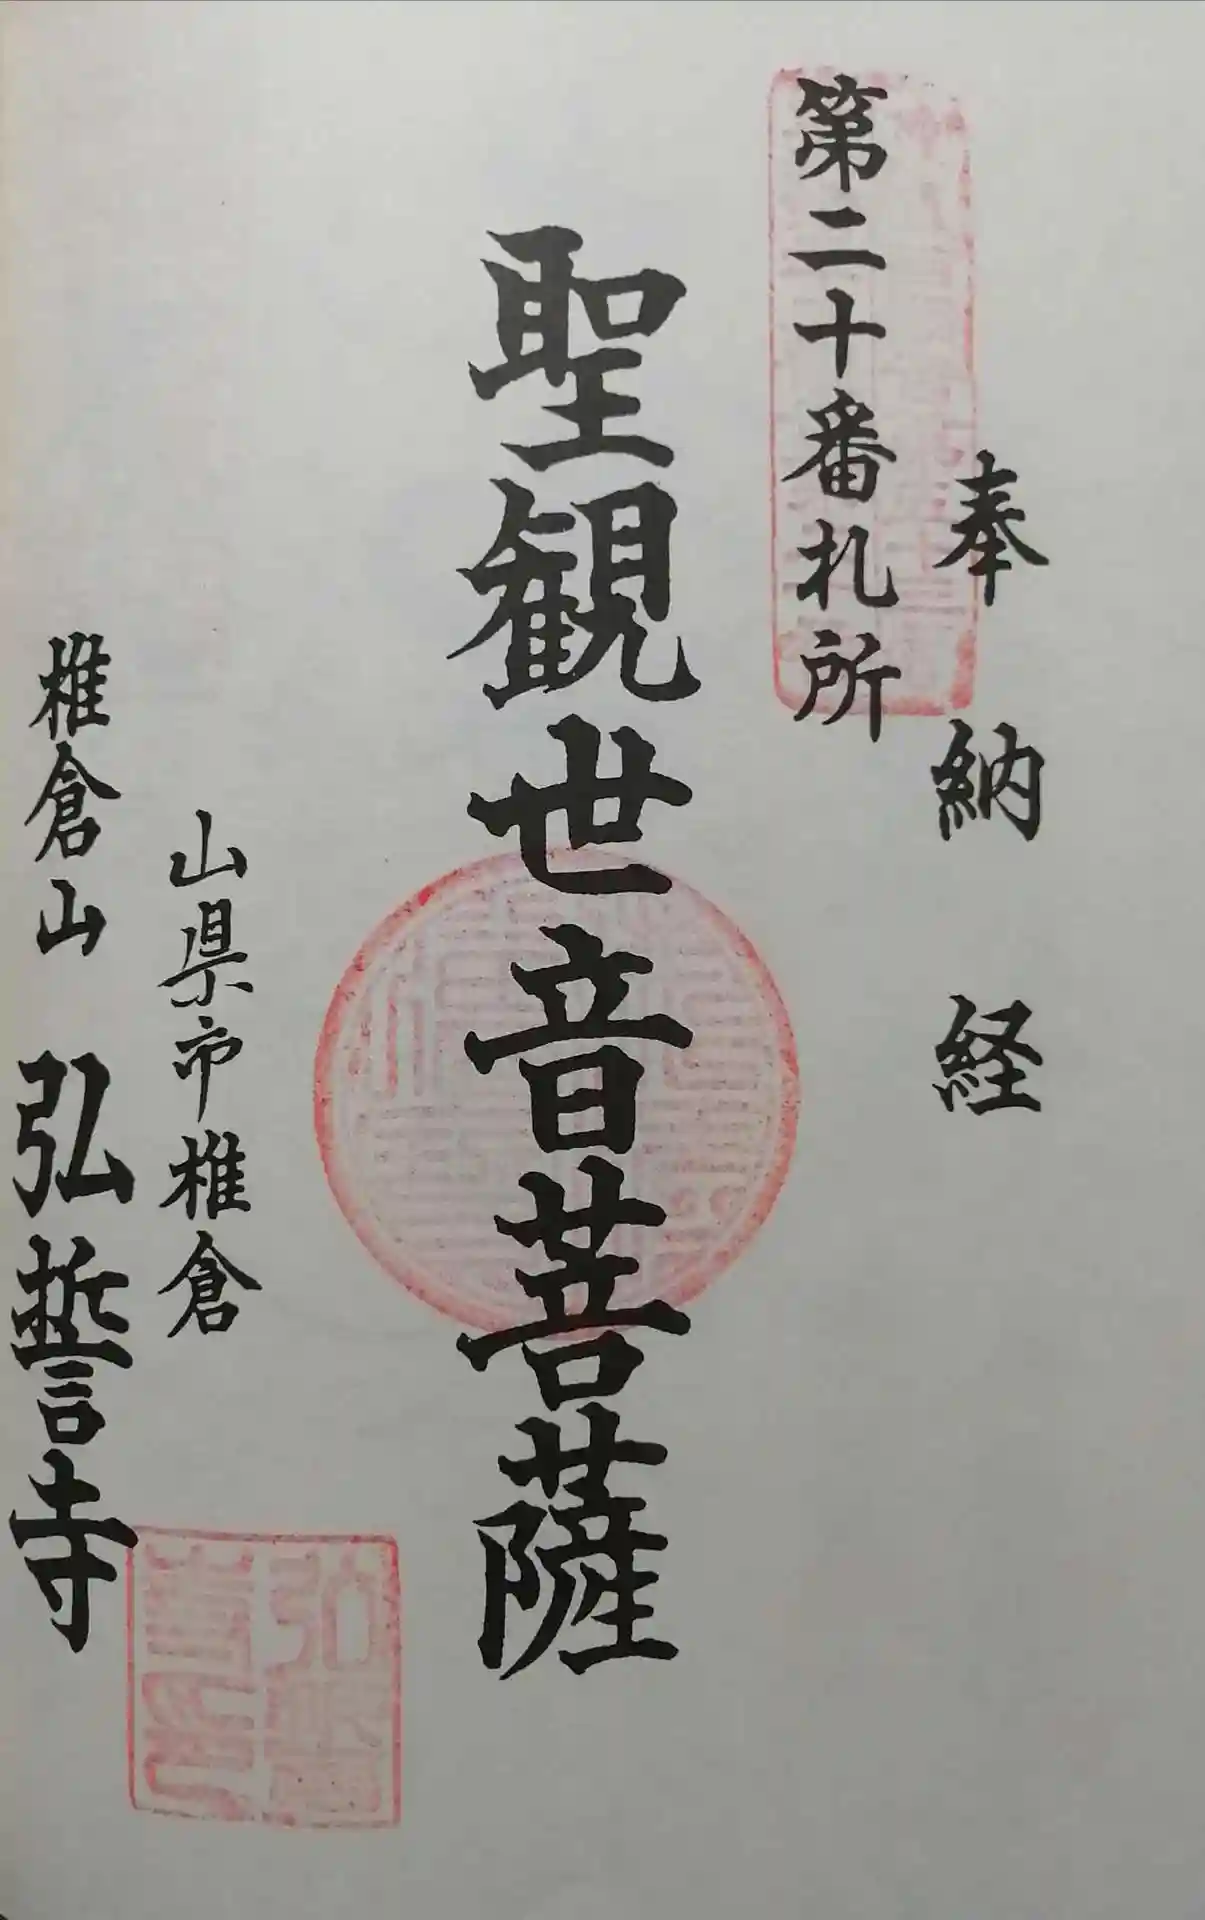 奉納経
第二十番札所
聖観世音菩薩
山県市椎倉
椎倉山 弘誓寺
弘誓寺印